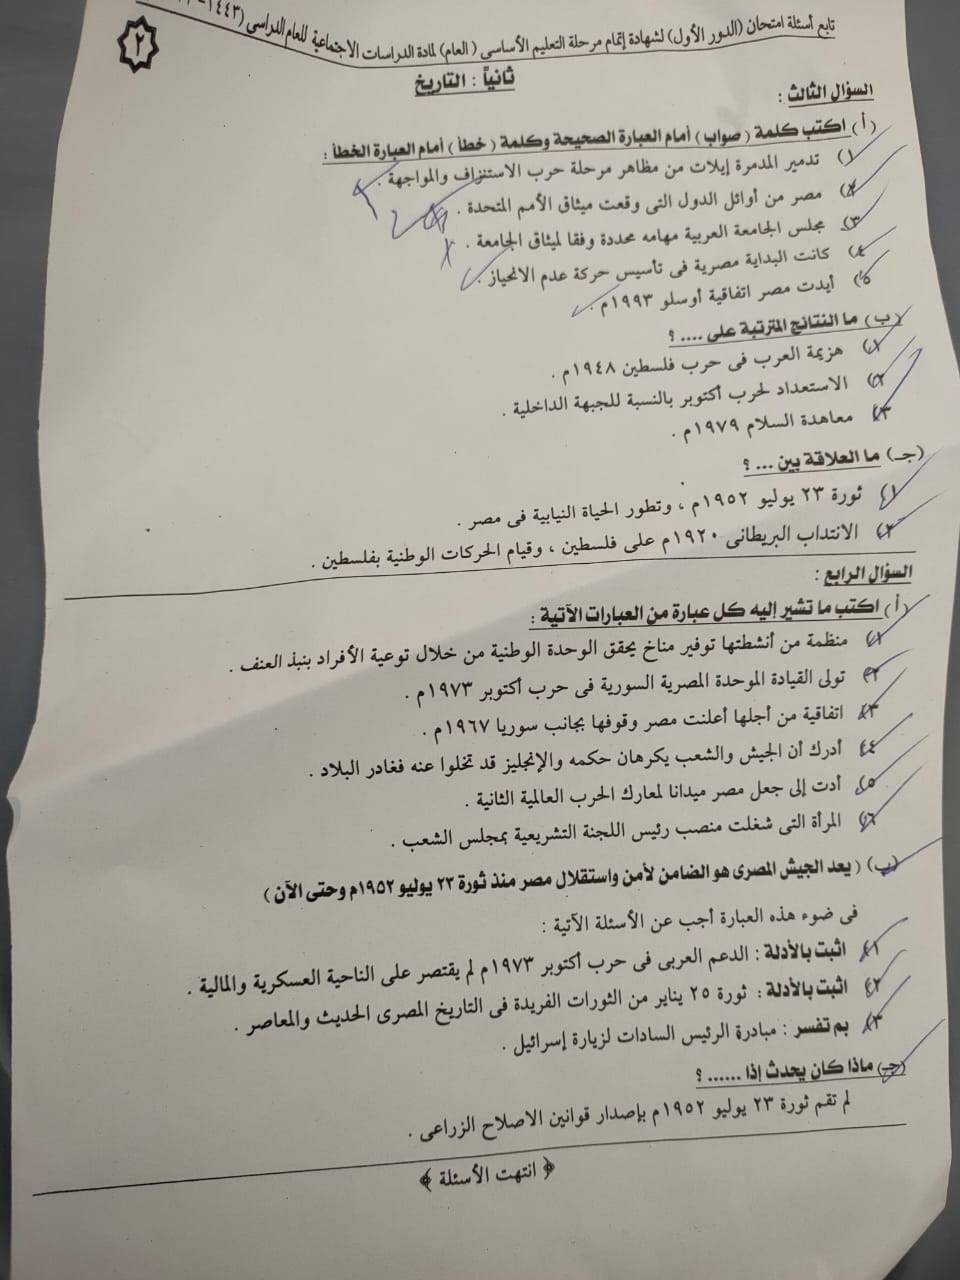 تابع أسئلة امتحان (الدور الأول) لشهادة إتمام مرحلة التعليم الأساسى (العام) لمادة الدراسات الاجتماعية للعام الدراسى (١٤٤٣-
٢
ثانياً : التاريخ
السؤال الثالث :
(أ) اكتب كلمة (صواب) أمام العبارة الصحيحة وكلمة (خطأ) أمام العبارة الخطأ :
١) تدمير المدمرة إيلات من مظاهر مرحلة حرب الاستنزاف والمواجهة .
٢) مصر من أوائل الدول التى وقعت ميثاق الأمم المتحدة .
٣) مجلس الجامعة العربية مهامه محددة وفقا لميثاق الجامعة .
٤) كانت البداية مصرية فى تأسيس حركة عدم الانحياز .
٥) أيدت مصر اتفاقية أوسلو ١٩٩٣م .
(ب) ما النتائج المترتبة على .... ؟
١) هزيمة العرب فى حرب فلسطين ١٩٤٨م .
٢) الاستعداد لحرب أكتوبر بالنسبة للجبهة الداخلية .
٣) معاهدة السلام ١٩٧٩م .
(جـ) ما العلاقة بين ... ؟
١) ثورة ٢٣ يوليو ١٩٥٢م ، وتطور الحياة النيابية فى مصر .
٢) الانتداب البريطانى ١٩٢٠م على فلسطين ، وقيام الحركات الوطنية بفلسطين .
السؤال الرابع :
(أ) اكتب ما تشير إليه كل عبارة من العبارات الآتية :
١) منظمة من أنشطتها توفير مناخ يحقق الوحدة الوطنية من خلال توعية الأفراد بنبذ العنف .
٢) تولى القيادة الموحدة المصرية السورية فى حرب أكتوبر ١٩٧٣م .
٣) اتفاقية من أجلها أعلنت مصر وقوفها بجانب سوريا ١٩٦٧م .
٤) أدرك أن الجيش والشعب يكرهان حكمه والإنجليز قد تخلوا عنه فغادر البلاد .
٥) أدت إلى جعل مصر ميدانا لمعارك الحرب العالمية الثانية .
٦) المرأة التى شغلت منصب رئيس اللجنة التشريعية بمجلس الشعب .
(ب) (يعد الجيش المصرى هو الضامن لأمن واستقلال مصر منذ ثورة ٢٣ يوليو ١٩٥٢م وحتى الآن)
فى ضوء هذه العبارة أجب عن الأسئلة الآتية :
١) اثبت بالأدلة : الدعم العربى فى حرب أكتوبر ١٩٧٣م لم يقتصر على الناحية العسكرية والمالية .
٢) اثبت بالأدلة : ثورة ٢٥ يناير من الثورات الفريدة فى التاريخ المصرى الحديث والمعاصر .
٣) بم تفسر : مبادرة الرئيس السادات لزيارة إسرائيل .
(جـ) ماذا كان يحدث إذا ...... ؟
لم تقم ثورة ٢٣ يوليو ١٩٥٢م بإصدار قوانين الاصلاح الزراعى .
﴿ انتهت الأسئلة ﴾